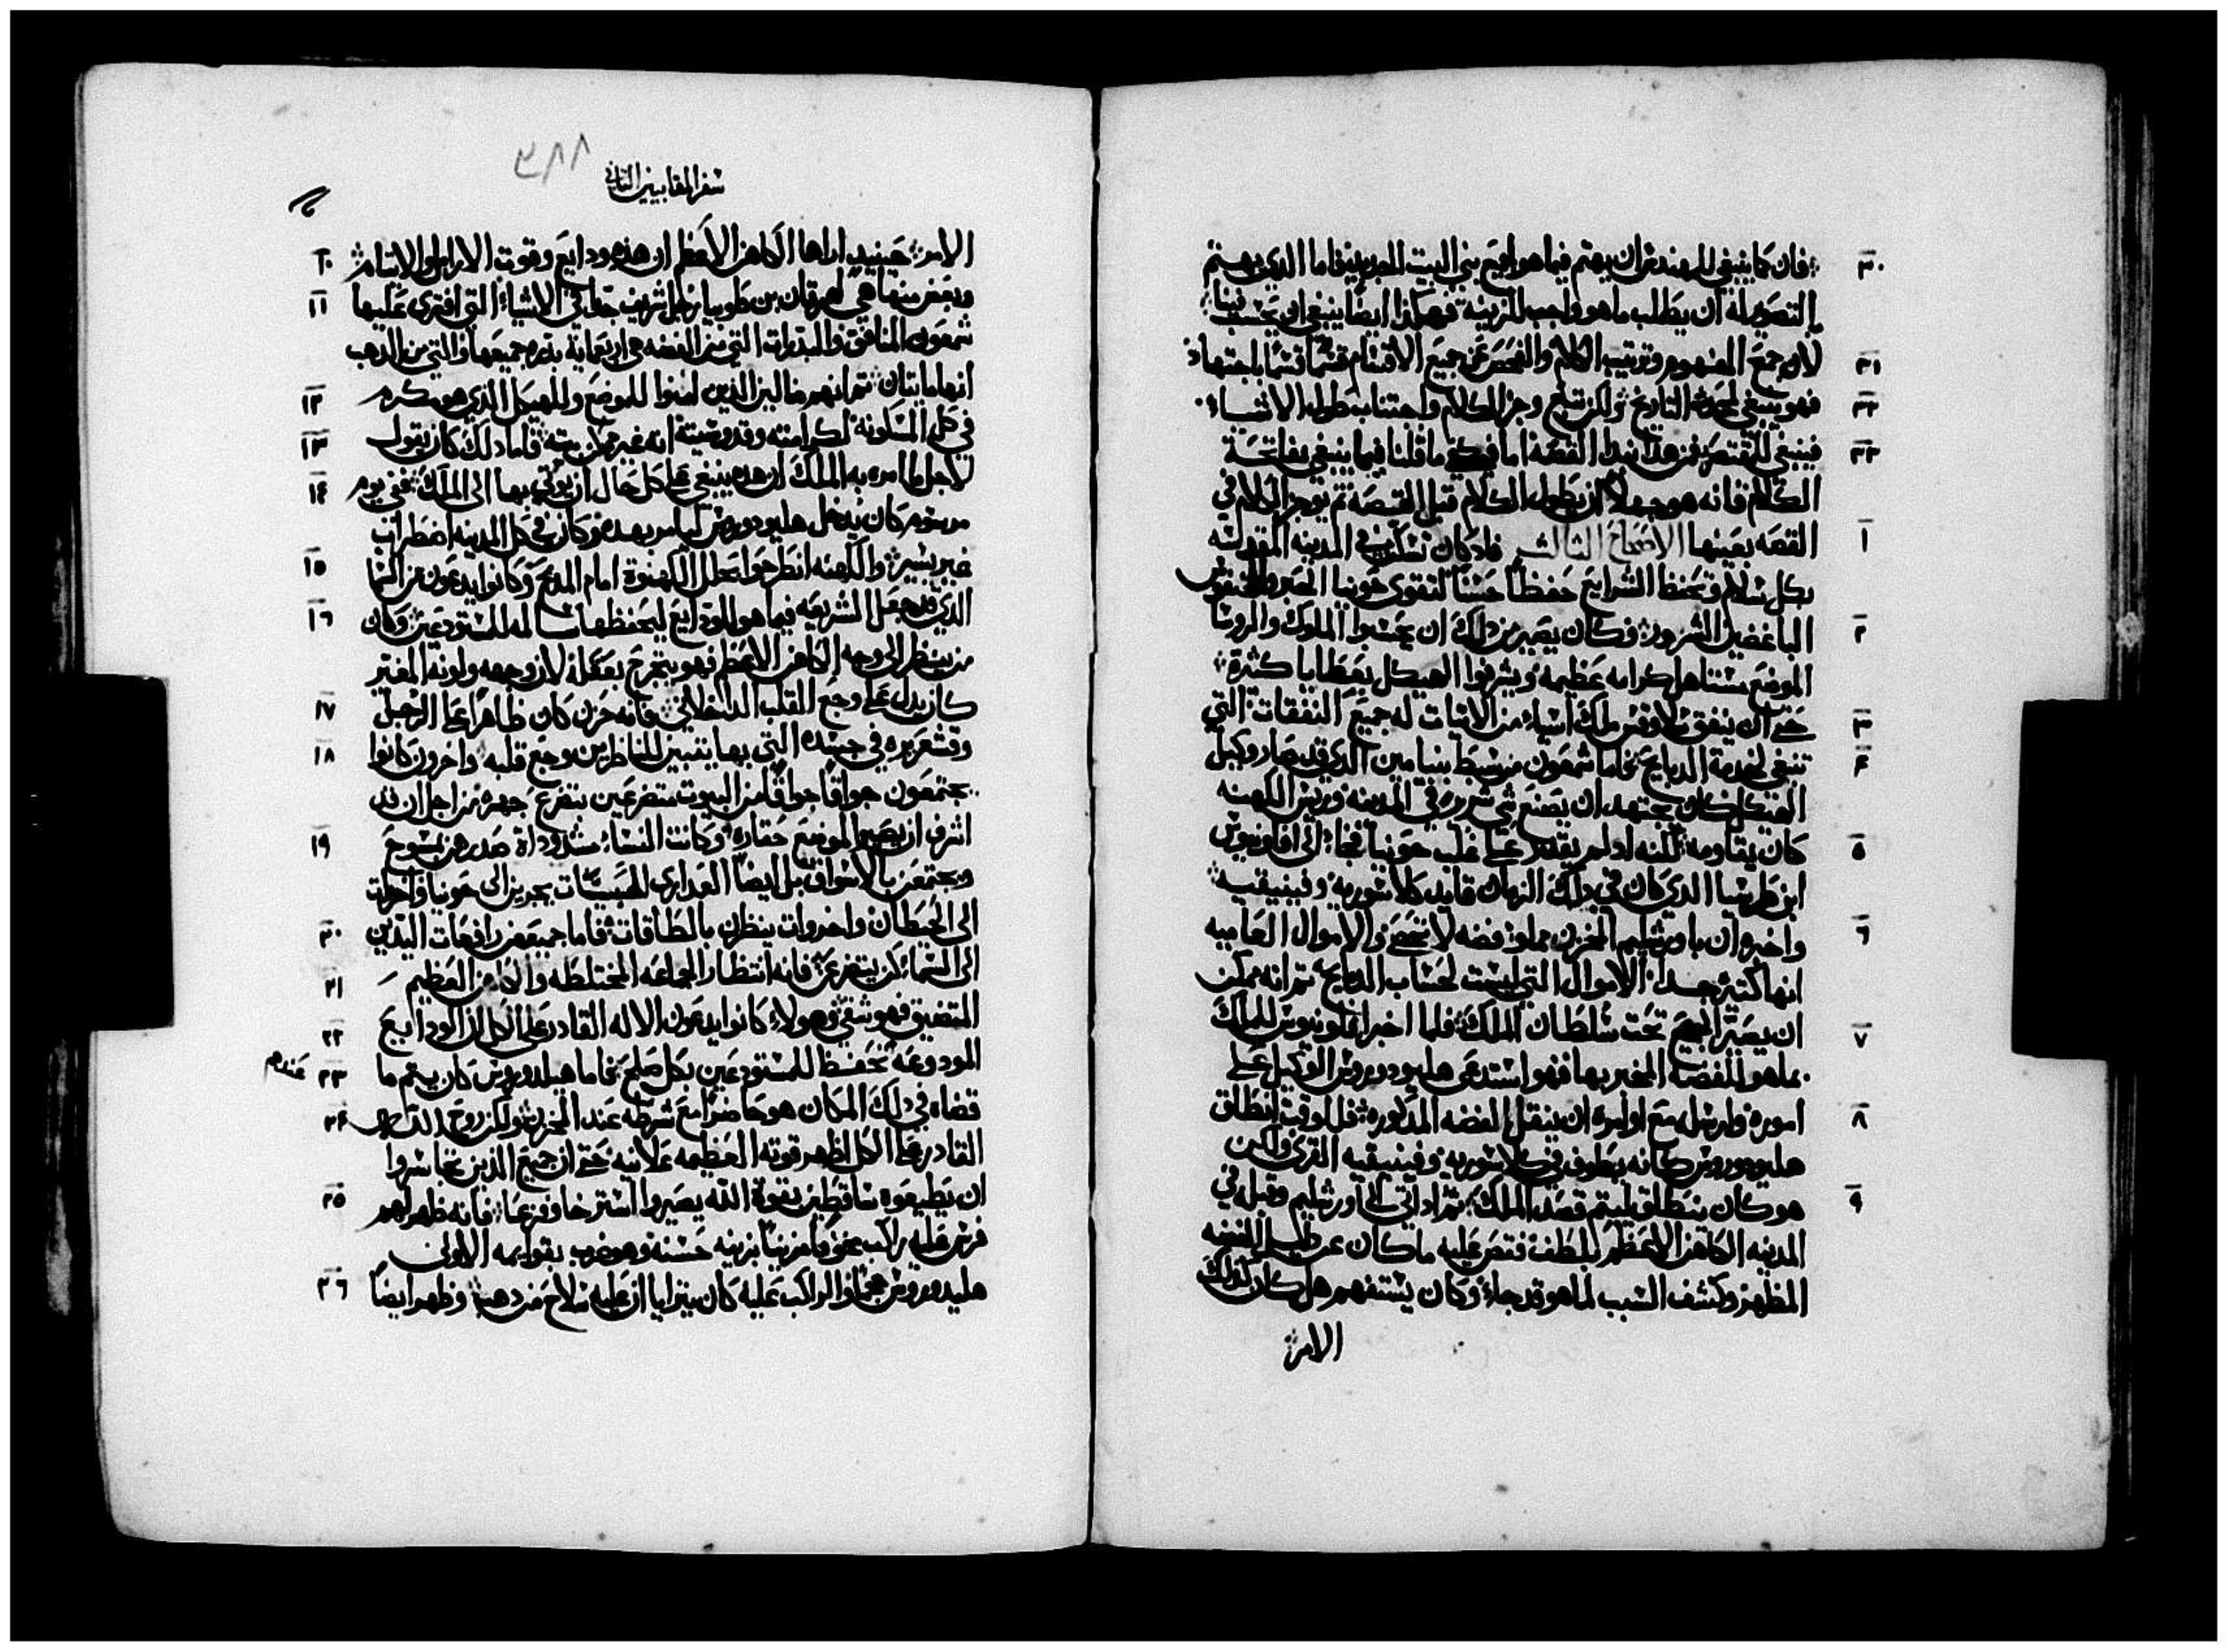 ٣٠ فان كما ينبغي للمهندس ان يهتم فيما هو لجميع بني البيت الجديد فاما الذي يهتم
التصوير له ان يطلب ما هو واجب للزينة فهكذا ايضا ينبغي ان يحسب فينا
٣١ لان جمع المفهوم وترتيب الكلام والفحص عن جميع الاقسام قسما قسما باجتهاد
٣٢ فهو ينبغي لمحدث التاريخ ولكن تتبع وجز الكلام واجتناب طول الاشياء
٣٣ فينبغي للمقتصر فمن هنا نبدا القصة اما فيكفي ما قلنا فيما ينبغي بفاتحة
الكلام فانه هو جهلا ان يطول الكلام قبل القصة ثم يوجز الكلام في
١ القصه بعينها الاصحاح الثالث فاذ كان تسكن في المدينه المقدسه
بكل سلام وتحفظ الشرايع حفظا حسنا لتقوى حونيا الحبر والنفوس
٢ الباغضين الشرور فكان يصير من ذلك ان يحسبوا الملوك والروسا
الموضع مستاهل كرامه عظيمه ويشرفوا الهيكل بعطايا كثيرة
٣ حتى ان ينفق سلاوقس ملك اسيا من الاتيات له جميع النفقات التي
٤ تنبغي لخدمة الدبايح فاما شمعون من سبط بنيامين الذي قد صار وكيل
الهيكل فكان يجتهد ان يصنع شي شرور في المدينه وريس الكهنه
٥ كان يقاومه لكنه اذ لم يقدر على غلب حونيا فجاء الى افلونيوس
ابن طرسيا الذي كان في ذلك الزمان قايد كلاسوريه وفينيقيه
٦ واخبره ان باورشليم المخزن مملوا فضه لا تحصى والاموال العاميه
انها كتيره جدا الاموال التي ليست لحساب الدبايح ثم انه ممكن
٧ ان يصير الجميع تحت سلطان الملك فلما اخبر افلونيوس للملك
بما هو للفضه المخبر بها فهو استدعى هليودوروس الوكيل على
٨ اموره وارسله مع اوامره ان ينقل الفضه المذكوره فللوقت انطلق
هليودوروس كانه يطوف في كلاسوريه وفينيقيه القرى ولكن
٩ هو كان ينطلق ليتم قصد الملك ثم اذ اتى الى اورشليم وقبل في
المدينه الكاهن الاعظم بلطف فقص عليه ما كان عن طلب الفضه
المظهر وكشف السبب لما هو قد جاء وكان يستفهم هل كان كذلك
الامر
٣٨٨
سفر المقابيين الثاني
١٠ الامر حينيد اراها الكاهن الاعظم ان هذه ودايع وقوت الارامل والايتام
١١ وبعض منها هي لهرقان بن طوبيا رجل شريف جدا في الاشياء التي افترى عليها
شمعون المنافق والبدرات التي من الفضه هي اربعماية بدره جميعها والتي من الدهب
١٢ انها مايتان ثم انهم ما ليز الذين امنوا للموضع وللهيكل الذي هو مكرم
١٣ في كل المسكونه لكرامته وقدوسيته انه غير ممكن فاما ذلك كان يقول
١٤ لاجل ما امره به الملك ان هذه ينبغي على كل حال ان يوتي بها الى الملك ففي يوم
مرسوم كان يدخل هليودوروس ليامر بهذه وكان في كل المدينه اضطراب
١٥ غير يسير والكهنه انطرحوا بحلل الكهنوة امام المدبح وكانوا يدعون من السما
١٦ الذي قد جعل الشريعه فيما هو للودايع ليحفظها سالمه للمستودعين وكان
من ينظر الى وجه الكاهن الاعظم فهو ينجرح بعقله لان وجهه ولونه المغير
١٧ كان يدل على وجع القلب الداخلاني فانه حزن كان ظاهرا على الرجل
١٨ وقشعريره في جسده التي بها يتبين للناظرين وجع قلبه واخرون كانوا
يجتمعون جواقا جواقا من البيوت متضرعين بتضرع جهره من اجل ان قد
١٩ اشرف ان يصير الموضع حقارة وكانت النساء مشدودات صدرهن بمسوح
ويجتمعن بالاسواق بل ايضا العداري المحبسات يجرين الى حونيا واخرات
٢٠ الى الحيطان واخروات ينظرن بالطاقات فاما جميعهن رافعات اليدين
٢١ الى السماء كن يتضرعن فانه انتظار الجماعه المختلطه والكاهن العظيم
٢٢ المتضيق فهو شقي وهولاء كانوا يدعون الاله القادر على الكل ان الودايع
٢٣ المودوعه تحفظ للمستودعين بكل صلح فاما هيليدوروس كان يتم ما عندم
٢٤ قضاه في ذلك المكان هو حاضرا مع شرطه عند المخزن ولكن روح الله
القادر على الكل اظهر قوته العظيمه علانيه حتى ان جميع الذين تجاسروا
٢٥ ان يطيعوه ساقطين بقوة الله يصيروا استرخا وفزعا فانه ظهر لهم
فرس عليه راكب مخوفا مزينا بزينه حسنة وهو ضرب بقوايمه الاولى
٢٦ هليدوروس هجما والراكب عليه كان يترايا ان عليه سلاح من دهب وظهر ايضا